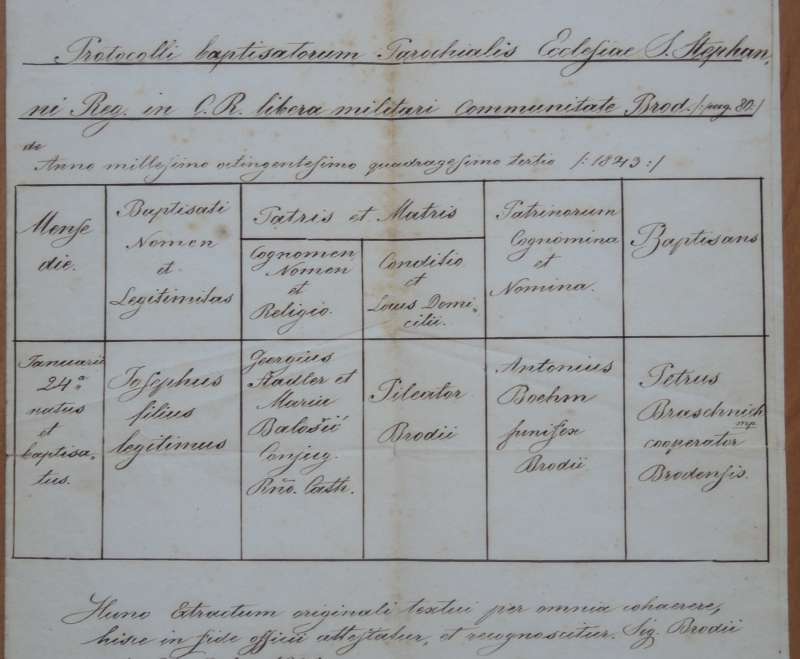 Protocolli baptisatorum Parochialis Ecclesiae S. Stephan,
ni Reg. in C. R. libera militari Communitate Brod. /: pag. 80:/
de
Anno millesimo octingentesimo quadragesimo tertio /: 1843 :/
Mense
die.
Baptisati
Nomen
et
Legitimitas
Patris et Matris
Cognomen
Nomen
et
Religio.
Conditio
et
Locus Domi-
cilii.
Patrinorum
Cognomina
et
Nomina.
Baptisans
Januarii
24a
natus
et
baptisa,
tus.
Josephus
filius
legitimus
Georgius
Stadler et
Maria
Conjug.
Rno. Cath.
Pileator
Brodii
Antonius
Boehm
funifex
Brodii
Petrus
Braschnich
mp
cooperator
Brodensis.
Hunc Extractum originali textui per omnia cohaerere,
hisce in fide officii attestatur, et recognoscitur. Sig. Brodii